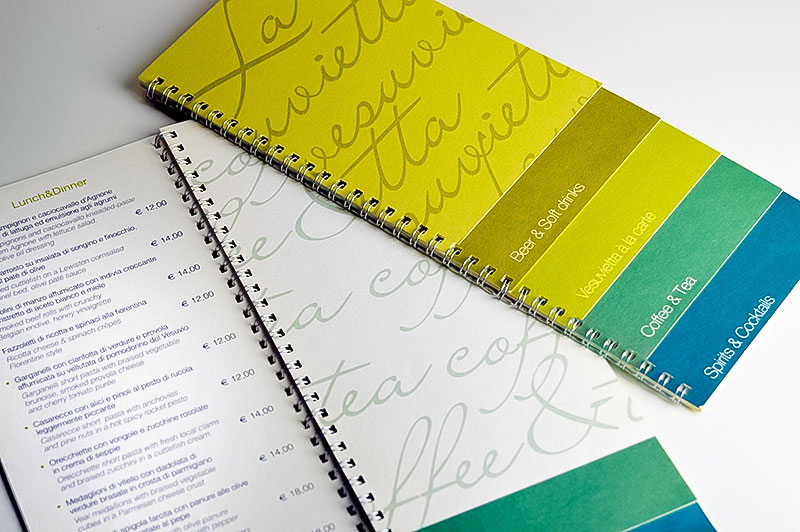 La
couvietta
vesuvi
tta
suvietta
Beer & Soft drinks
Vesuvietta à la carte
Coffee & Tea
Spirits & Cocktails
Lunch&Dinner
mpignon e caciocavallo d'Agnone
di lattuga ed emulsione agli agrumi
pignons and caciocavallo kneaded-paste
om Agnone with lettuce salad,
olive oil dressing
€ 12,00
arrosto su insalata di songino e finocchio,
el patè di olive
ed cuttlefish on a Lewiston cornsalad
nnel bed, olive paté sauce
€ 14,00
olini di manzo affumicato con indivia croccante
ristretto di aceto bianco e miele
moked beef rolls with crunchy
Belgian endive, honey vinaigrette
€ 14,00
Fazzoletti di ricotta e spinaci alla fiorentina
Ricotta cheese & spinach crêpes
Florentine style
€ 12,00
Garganelli con cianfotta di verdure e provola
affumicata su vellutata di pomodorino del Vesuvio
Garganelli short pasta with braised vegetable
brunoise, smoked provola cheese
and cherry tomato purée
€ 12,00
Casarecce con alici e pinoli al pesto di rucola
leggermente piccante
Casarecce short pasta with anchovies
and pine nuts in a hot spicy rocket pesto
€ 12,00
Orecchiette con vongole e zucchine rosolate
in crema di seppie
Orecchiette short pasta with fresh local clams
and braised zucchini in a cuttlefish cream
€ 14,00
Medaglioni di vitello con dadolata di
verdure brasate in crosta di parmigiano
Veal medallions with braised vegetable
cubes in a Parmesan cheese crust
€ 14,00
di spigola farcita con panure alle olive
€ 18,00
ffee &
tea coffee
tea coff
ffee & t